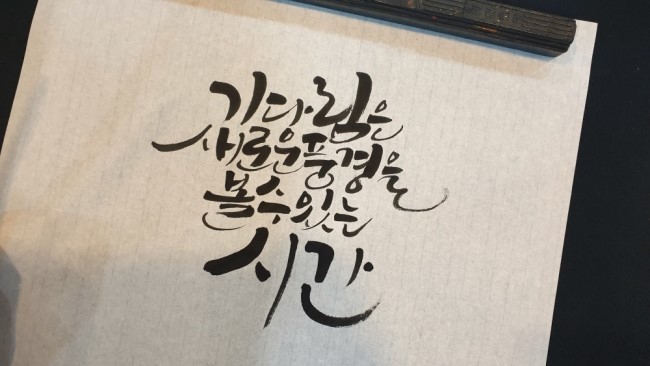 기다림은
새로운풍경을
볼수있는
시간